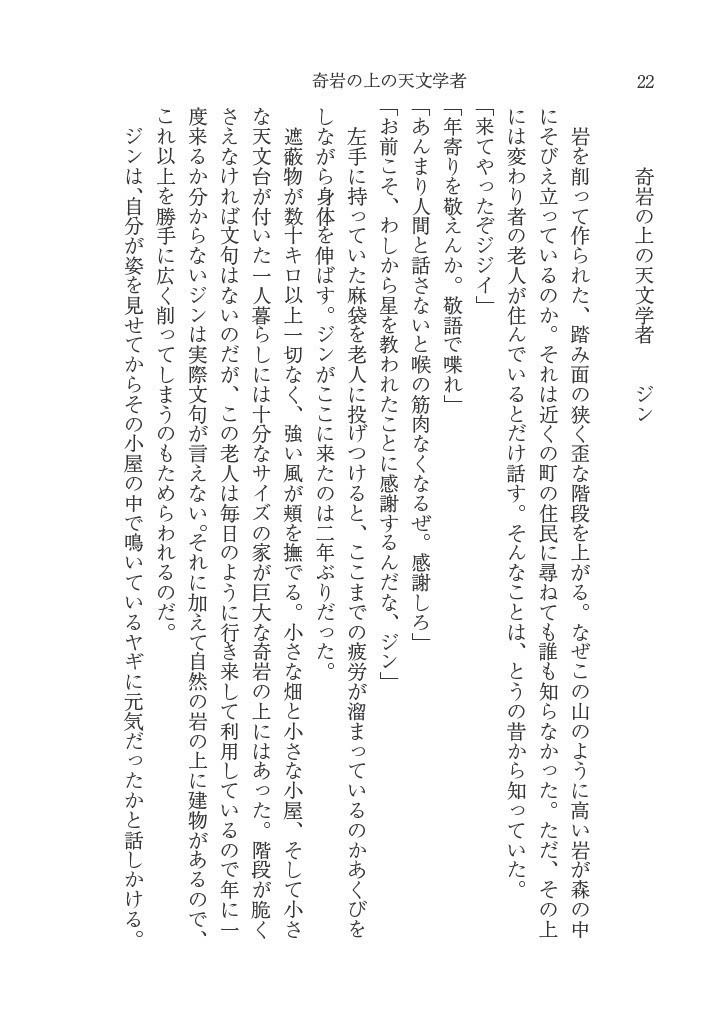 奇岩の上の天文学者
22
奇岩の上の天文学者　　ジン
岩を削って作られた、踏み面の狭く歪な階段を上がる。なぜこの山のように高い岩が森の中
にそびえ立っているのか。それは近くの町の住民に尋ねても誰も知らなかった。ただ、その上
には変わり者の老人が住んでいるとだけ話す。そんなことは、とうの昔から知っていた。
「来てやったぞジジイ」
「年寄りを敬えんか。敬語で喋れ」
「あんまり人間と話さないと喉の筋肉なくなるぜ。感謝しろ」
「お前こそ、わしから星を教われたことに感謝するんだな、ジン」
左手に持っていた麻袋を老人に投げつけると、ここまでの疲労が溜まっているのかあくびを
しながら身体を伸ばす。ジンがここに来たのは二年ぶりだった。
遮蔽物が数十キロ以上一切なく、強い風が頬を撫でる。小さな畑と小さな小屋、そして小さ
な天文台が付いた一人暮らしには十分なサイズの家が巨大な奇岩の上にはあった。階段が脆く
さえなければ文句はないのだが、この老人は毎日のように行き来して利用しているので年に一
度来るか分からないジンは実際文句が言えない。それに加えて自然の岩の上に建物があるので、
これ以上を勝手に広く削ってしまうのもためらわれるのだ。
ジンは、自分が姿を見せてからその小屋の中で鳴いているヤギに元気だったかと話しかける。